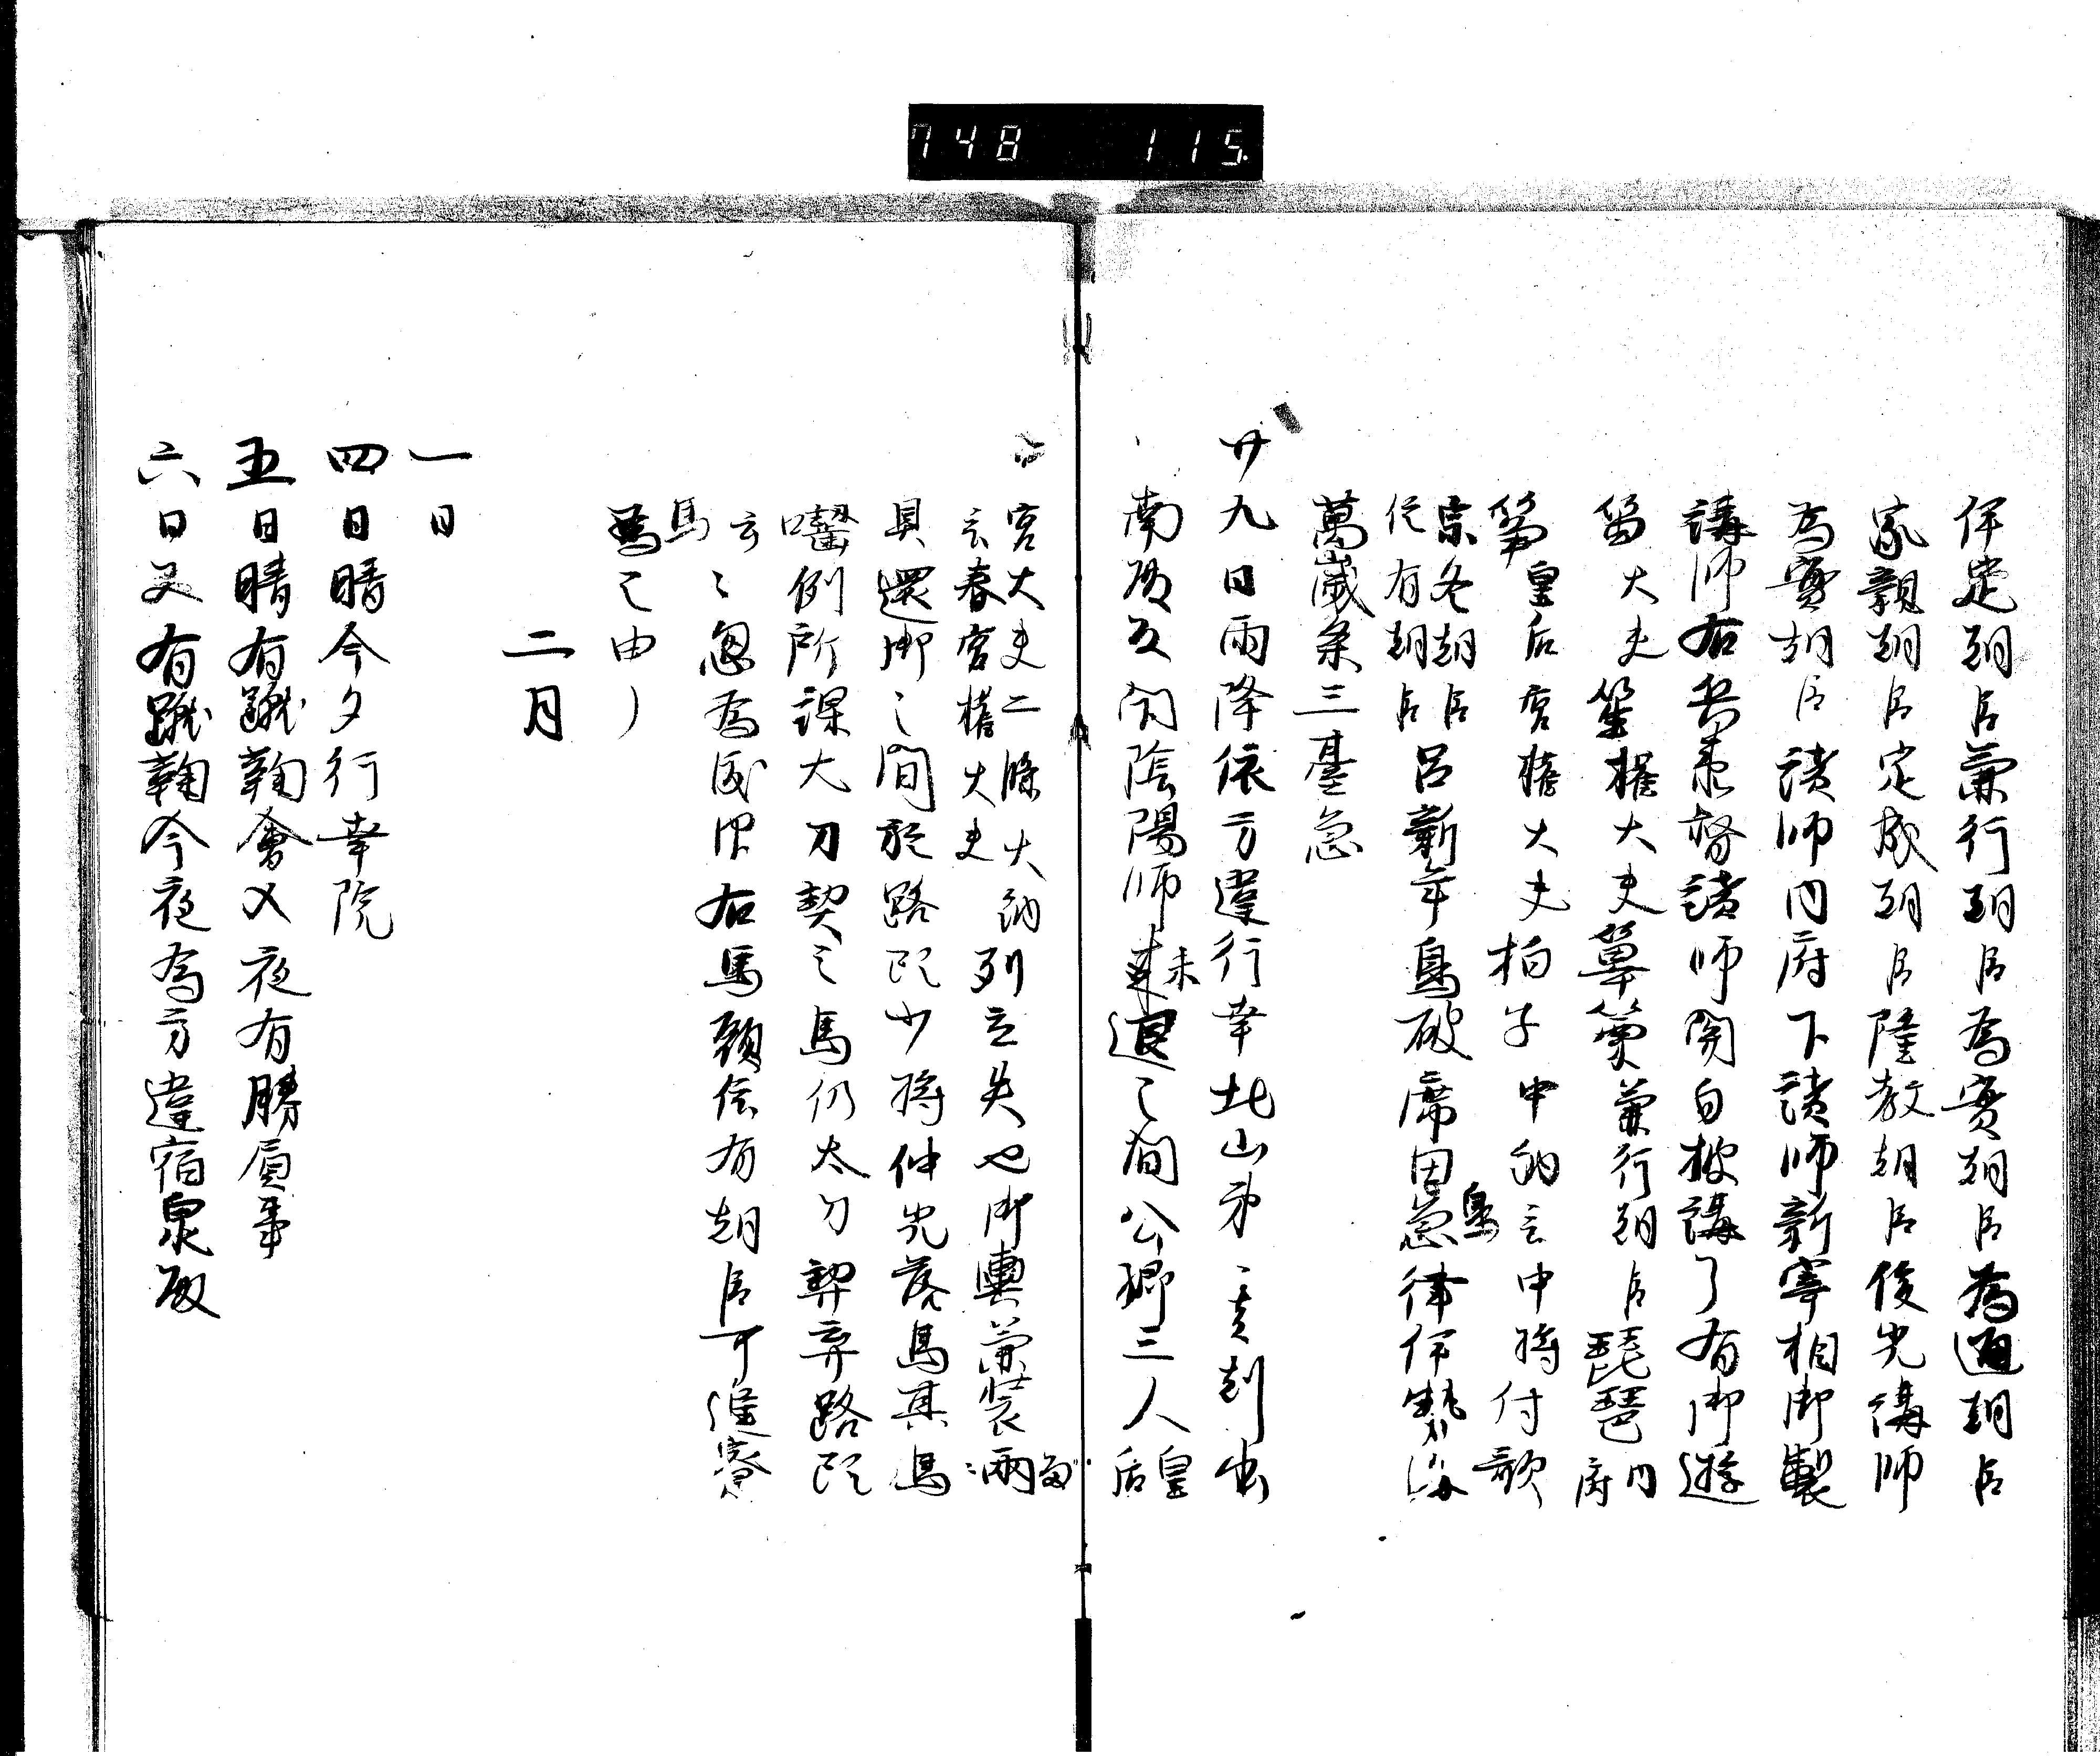 748 115
伊定朝臣兼行朝臣為實朝臣為通朝臣
家親朝臣定成朝臣隆教朝臣俊光講師
為實朝臣読師内府下読師新宰相御製
講師右兵衛督読師関白披講了有御遊
笛大夫笙權大夫篳篥兼行朝臣琵琶内府
箏皇后宮權大夫拍子中納言中将付歌
宗冬朝臣
従有朝臣呂新年鳥破席田鳥急律伊勢海
萬歳楽三臺急
廿九日雨降依方違行幸北山第刻出
南殿反閇陰陽師未退之間公卿三人皇后
宮大夫二條大納
言春宮權大夫列立失也御輿兼装雨
具還御之間於路頭少将仲光落馬其馬
囓例所課大刀契之馬仍太刀契弃路頭
云々忽為右馬頭信有朝臣可進寮
馬
馬之由
二月
一日
四日晴今夕行幸院
五日晴有蹴鞠會入夜有勝負事
六日又有蹴鞠今夜為方違宿泉殿